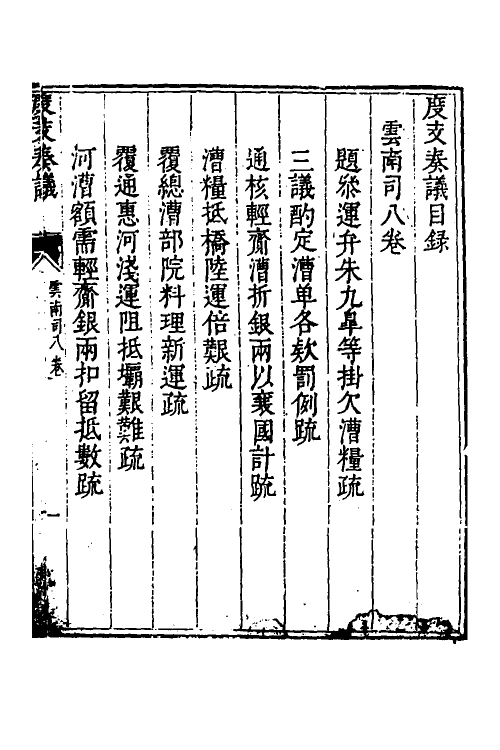 度支奏議目錄
雲南司八卷
題叅運弁朱九臯等掛欠漕糧疏
三議酌定漕单各欵罰例疏
通核輕齎漕折銀兩以襄國計疏
漕糧抵橋陸運倍艱疏
覆總漕部院料理新運疏
覆通惠河淺運阻抵壩艱難疏
河漕額需輕齎銀兩扣留抵數疏
度支奏議
雲南司八卷
一